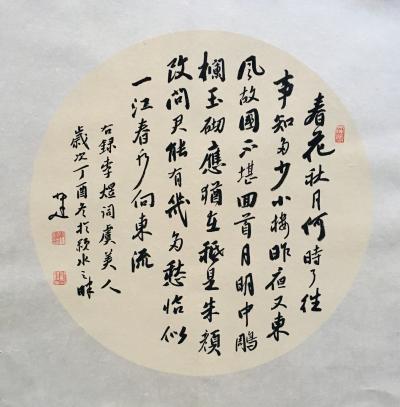 春花秋月何時了往
事知多少小樓昨夜又東
風故國不堪回首月明中雕
欄玉砌應猶在祗是朱顔
改問君能有幾多愁恰似
一江春水向東流
右録李煜詞虞美人
歲次丁酉冬於潁水之畔